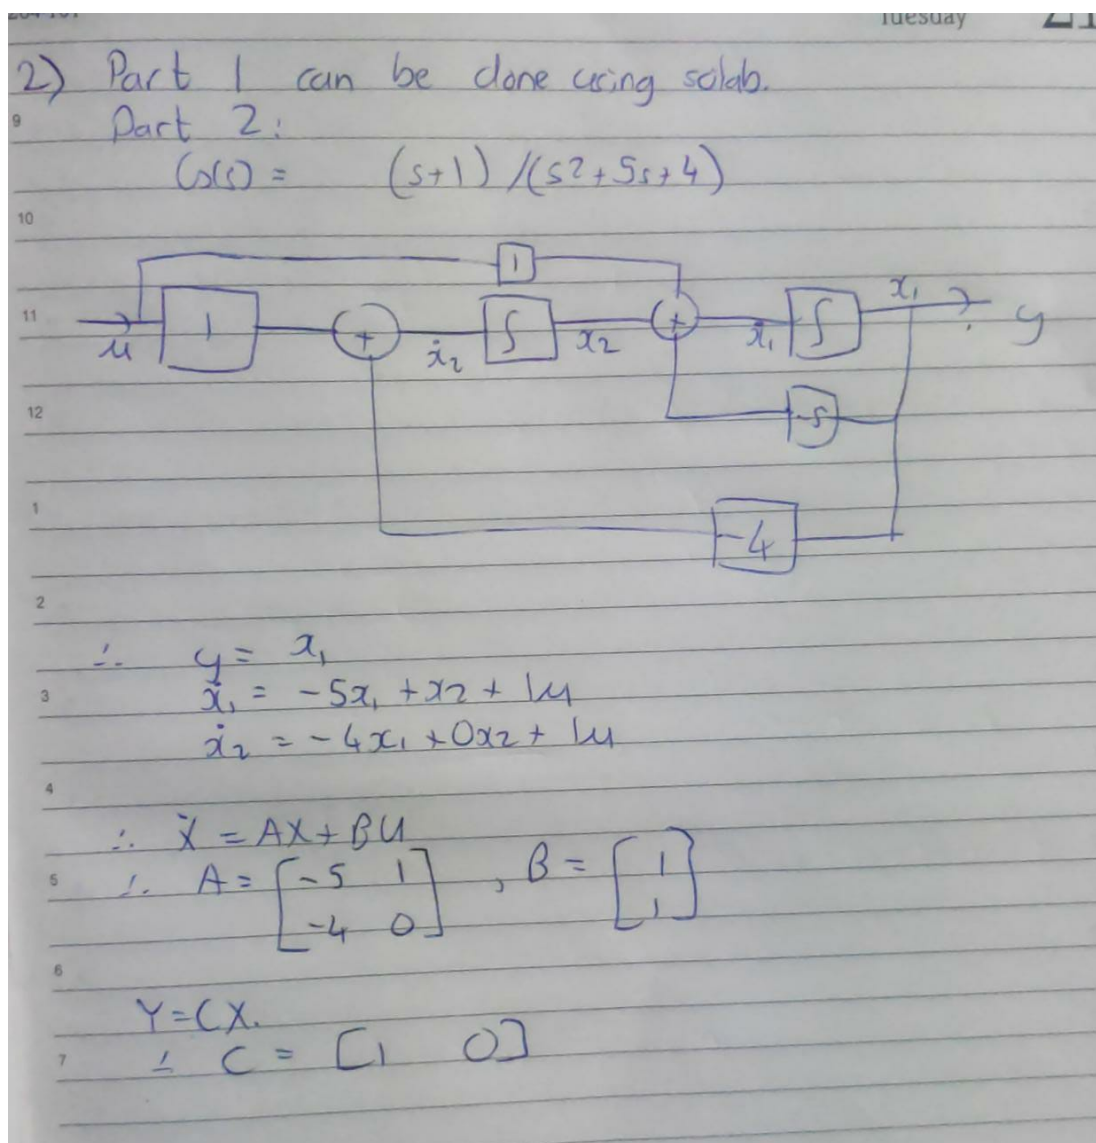 Tuesday
2) Part 1 can be done using scilab.
9
Part 2:
G(s) = (s+1) /(s2+5s+4)
10
1
11
u 1 + ẋ2 ∫ x2 + ẋ1 ∫ x1 y
12
-5
1
-4
2
∴ y = x1
3
ẋ1 = -5x1 + x2 + 1u
ẋ2 = -4x1 + 0x2 + 1u
4
∴ Ẋ = AX + BU
5
∴ A = [-5 1 , B = [1
-4 0] 1]
6
Y = CX.
7
∴ C = [1 0]